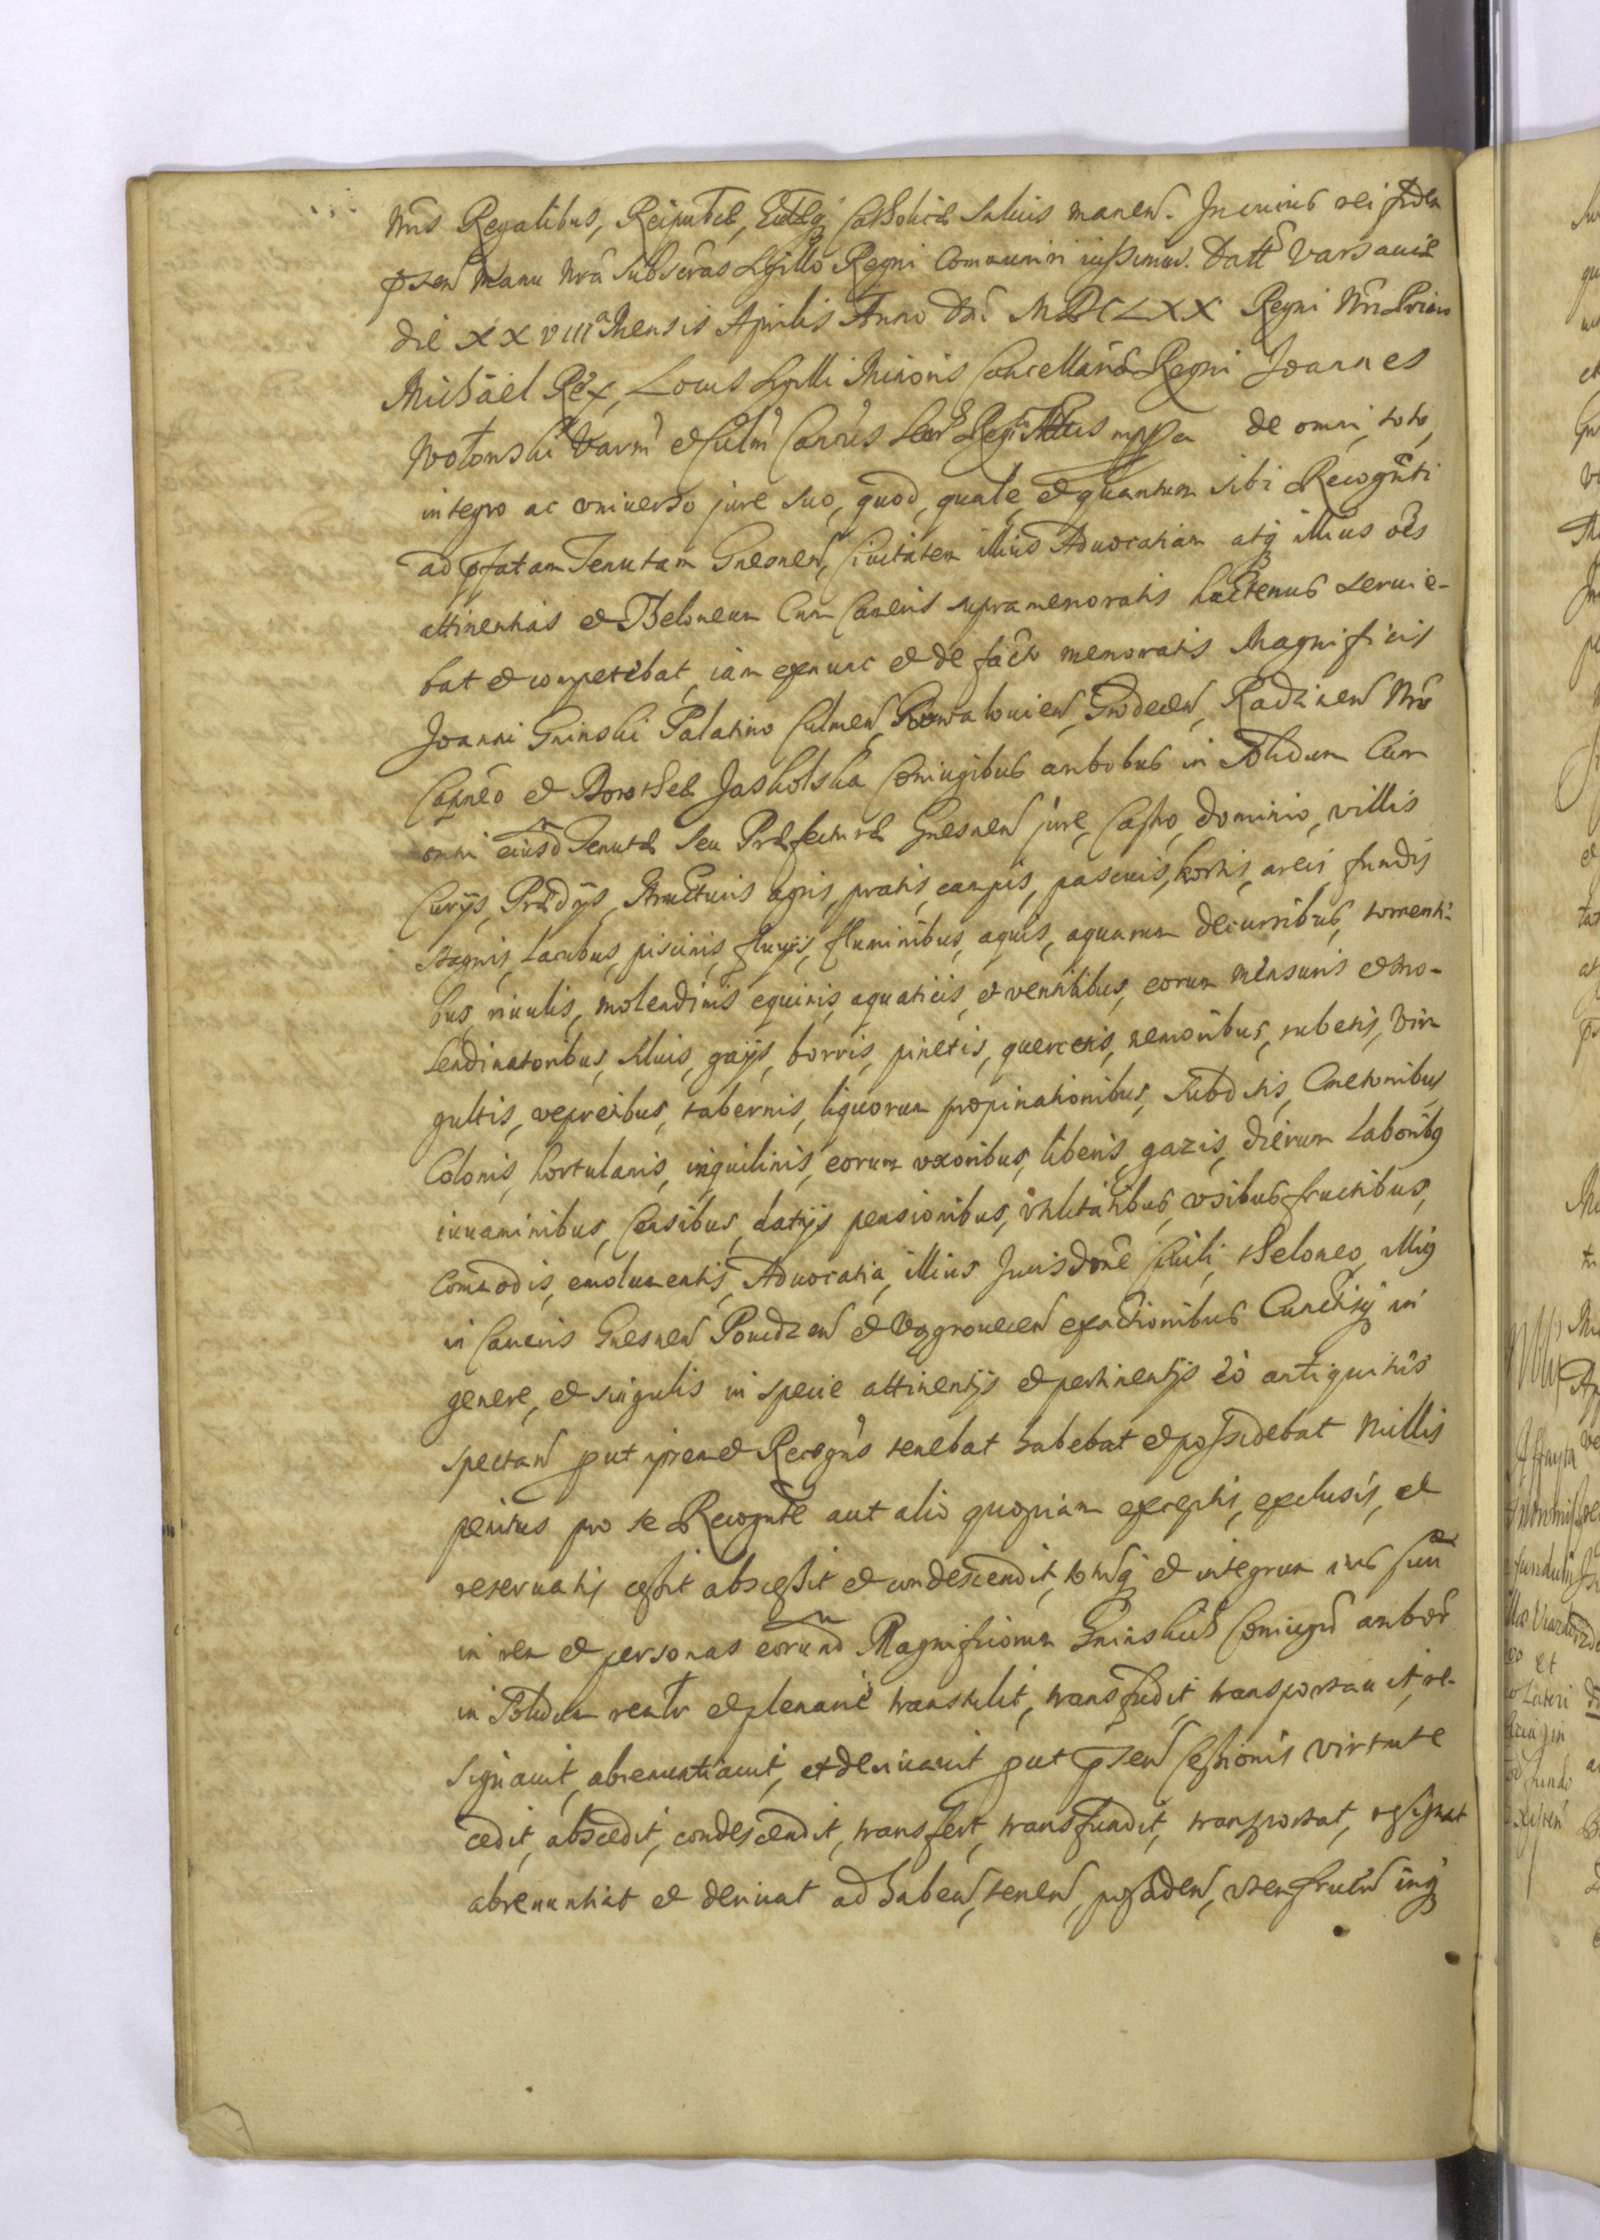 Nris Regalibus, Reipubcæ, Ecclæq Catholicæ saluis manen. In cuius rei fidem
psen manu Nrâ subscras Sigillo Regni communiri iussimus. Datt Varsauiæ
die XXVIIIa Mensis Aprilis Anno Dni MDCLXX Regni Nri Primo
Michäel Rex, Locus Sigilli Minoris Cancellariæ Regni Joannes
Wolonski Varm et Culm Canonicus mppa de omni, toto,
integro ac vniuerso jure suo, quod, quale, et quantum sibi Recognti
ad pfatam Tenutam Gnesnen, Ciuitatem illius Aduocatiam atq illius oes
attinentias et Theloneum Cum Cameris supramemoratis hactenus seruie-
bat et competebat, iam exnunc et de facto memoratis Magnificis
Joanni Gninski Palatino Culmen, Grodecen, Radzinen Nro
Capneo et Dorotheæ Jaskolska Coniugibus ambobus in solidum Cum
omni eiusd Tenutæ seu Præfecturæ Gnesnen jure, Castro, dominio, villis
Curijs, Prædijs, structuris agris, pratis, campis, pascuis, hortis, areis fundis
stagnis, lacubus, piscinis, fluuijs, fluminibus, aquis, aquarum decursibus, torrenti-
bus, riuulis, molendinis equinis, aquaticis, et ventilibus, eorum mensuris et mo-
lendinatoribus, siluis, gaijs, borris, pinetis, quercetis, nemoribus, rubetis, vir
gultis, vepretibus, tabernis, liquorum propinationibus, subditis, Cmetonibus
Colonis, hortulanis, inquilinis, eorum vxoribus, liberis, gazis, dierum laboribq
iuuaminibus, Censibus, datijs pensionibus, vtilitatibus, vsibus fructibus,
comodis, emolumentis, Aduocatia, illius Jurisdone Ciuili, theloneo, illiq
in Cameris Gnesnen Powidzen et Vągrouecen exactionibus Cunctisq in
genere, et singulis in specie attinentijs et pertinentijs eo antiquitus
spectan put ipsemet Recogns tenebat habebat et possidebat Nullis
penitus pro se Recognte aut alio quopiam exceptis, exclusis, et
reseruatis cessit abscessit et condescendit, totuq et integrum ius suu
in rem et personas eorund Magnificorum Gninskich Coniugu ambor
in solidum realr et plenarie transtulit, transfudit, transportauit, re-
signauit, abrenuntiauit, et deriuauit put psen Cessionis virtute
cedit, abscedit, condescendit, transfert, transfundit, transportat, resignat
abrenuntiat et deriuat ad haben, tenen, possiden, vten fruen inq